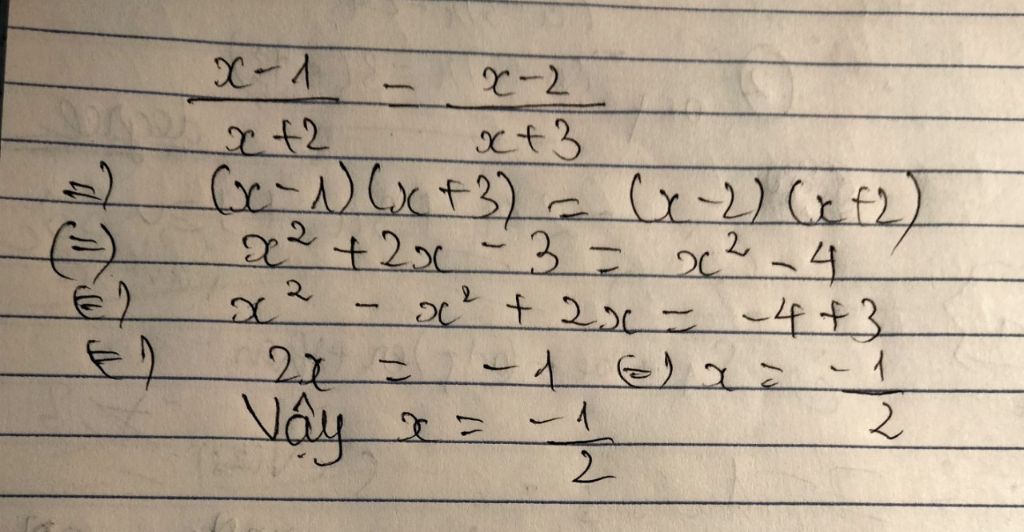 x-1/x+2 = x-2/x+3
=> (x-1)(x+3) = (x-2)(x+2)
<=> x² + 2x - 3 = x² - 4
<=> x² - x² + 2x = -4 + 3
<=> 2x = -1 <=> x = -1/2
Vậy x = -1/2